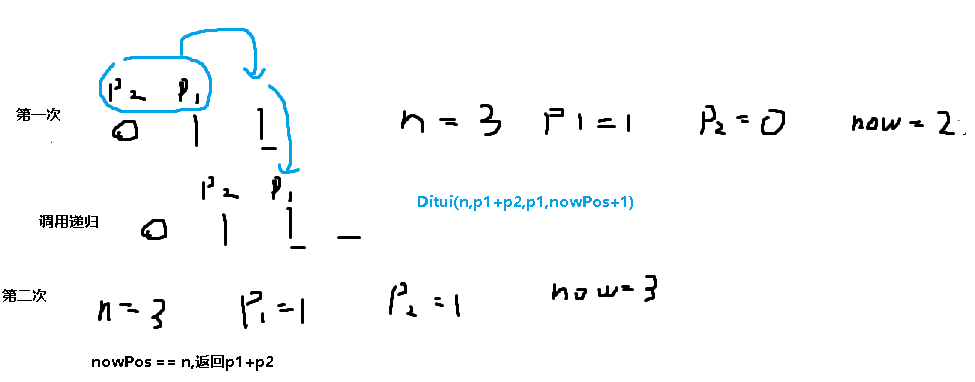 P2 P1
第一次
0 1 1
n = 3 P1=1 P2=0 now=2
P2 P1
Ditui(n,p1+p2,p1,nowPos+1)
调用递归
0 1 1 _
第二次
n=3 P1=1 P2=1 now=3
nowPos == n,返回p1+p2